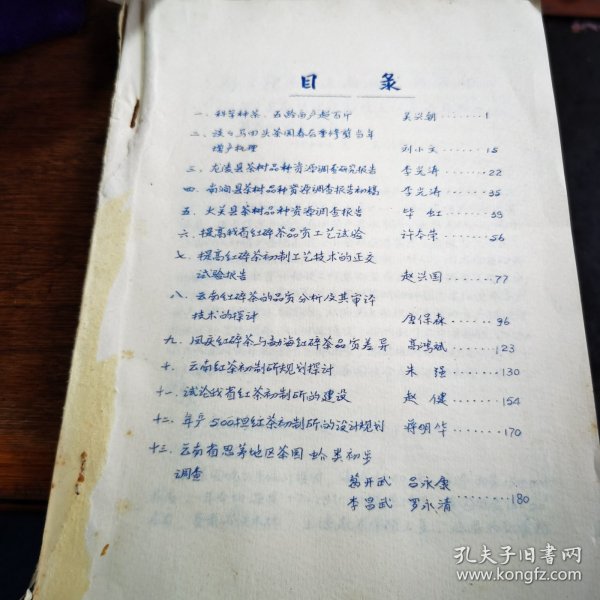 目 录
一、科学种茶、五龄亩产超百斤 吴兴朝……1
二、谈马田头茶园春茶重修剪当年
增产机理 刘小文……15
三、龙陵县茶树品种资源调查研究报告 李光涛……22
四、南涧县茶树品种资源调查报告初稿 李光涛……35
五、大关县茶树品种资源调查报告 毕虹……39
六、提高我省红碎茶品质工艺试验 许冬荣……56
七、提高红碎茶初制工艺技术的正交
试验报告 赵兴国……77
八、云南红碎茶的品质分析及其审评
技术的探讨 唐保森……96
九、凤庆红碎茶与勐海红碎茶品质差异 高鸿斌……123
十、云南红茶初制所规划探讨 朱强……130
十一、试论我省红茶初制所的建设 赵健……154
十二、年产500担红茶初制所的设计规划 蒋明华……170
十三、云南省思茅地区茶园蚧类初步
调查 葛开武 吕永康
李昌武 罗永清……180
孔夫子旧书网
www.kongfz.com